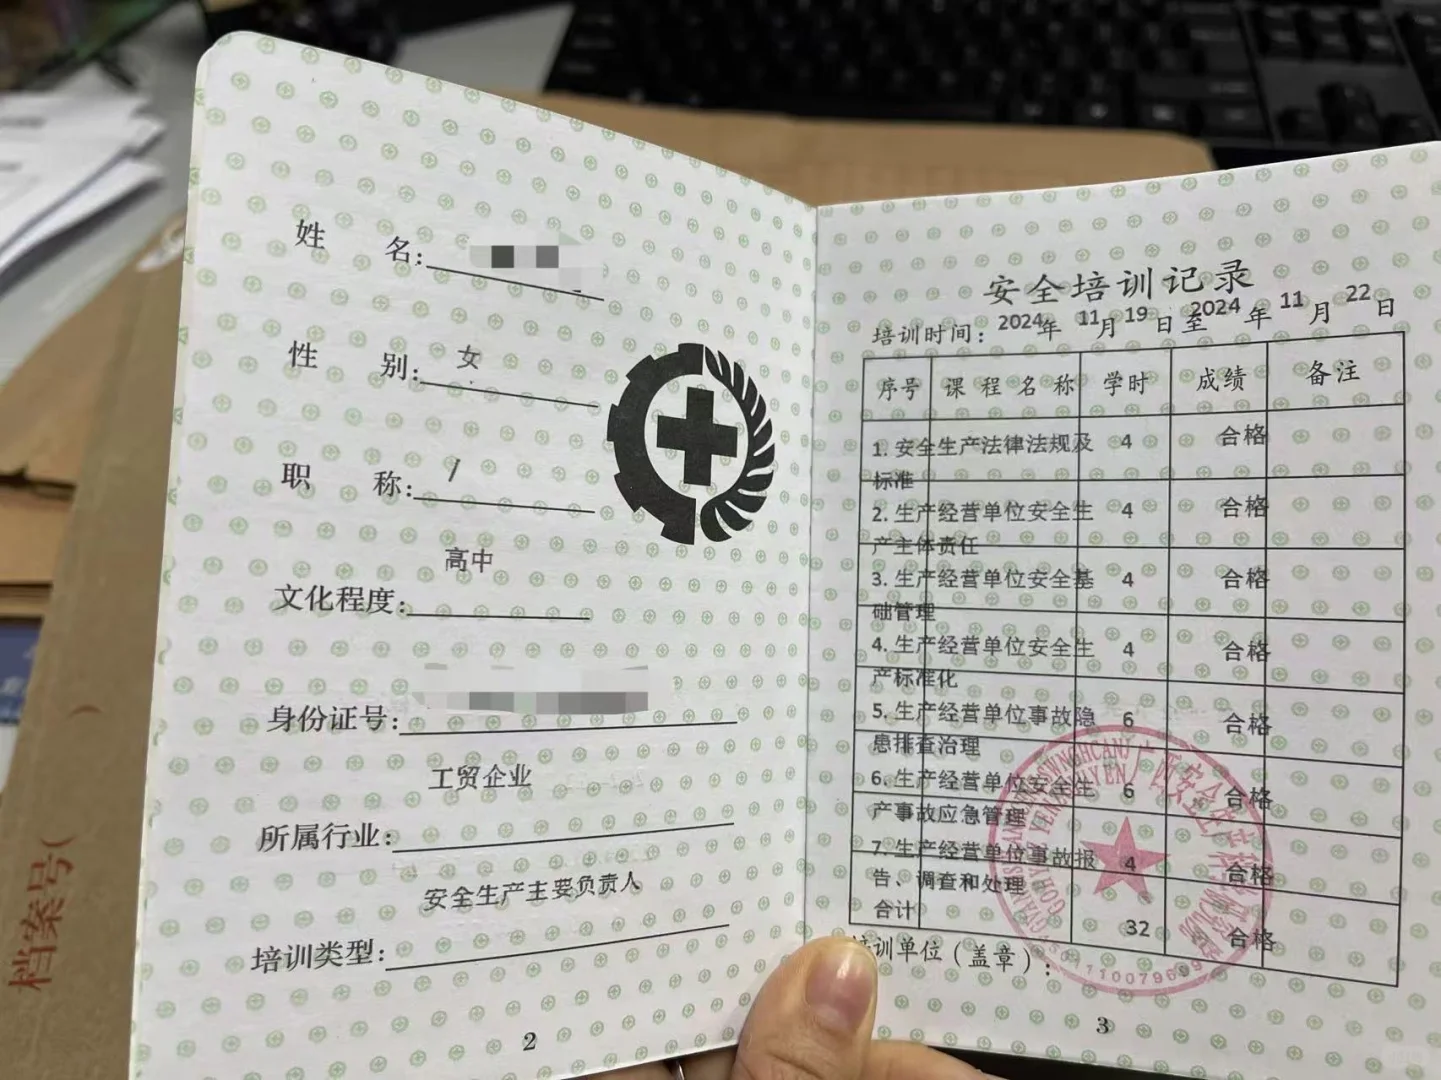 姓 名：
性 别： 女
职 称： /
文化程度： 高中
身份证号：
所属行业： 工贸企业
培训类型： 安全生产主要负责人
2
安全培训记录
培训时间： 2024年 11月 19日 至 2024年 11月 22日
序号 课程名称 学时 成绩 备注
1. 安全生产法律法规及 4 合格
标准
2. 生产经营单位安全生 4 合格
产主体责任
3. 生产经营单位安全基 4 合格
础管理
4. 生产经营单位安全生 4 合格
产标准化
5. 生产经营单位事故隐 6 合格
患排查治理
6. 生产经营单位安全生 6 合格
产事故应急管理
7. 生产经营单位事故报 4 合格
告、调查和处理
合计 32 合格
培训单位（盖章）：
3
档案号(
)